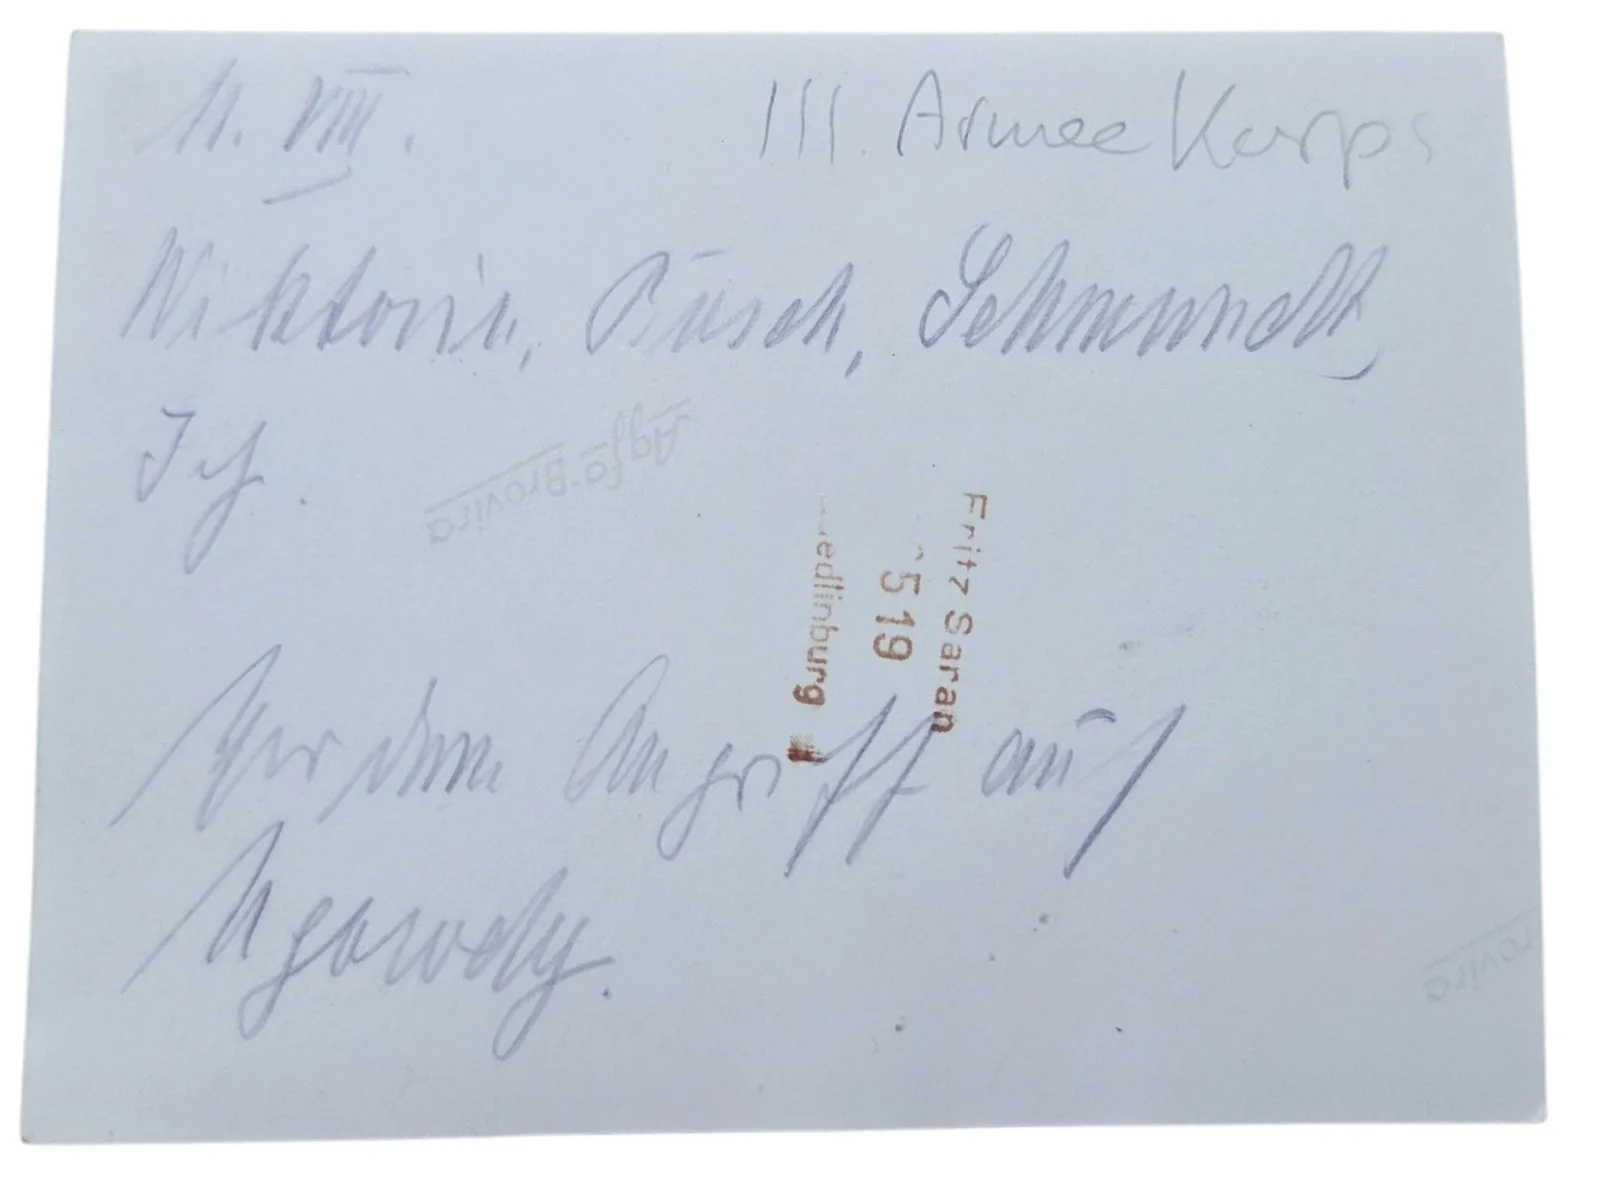 11. VIII.
III. Armee Korps
Wiktorin, Busch, Schmundt,
Ich.
Agfa-Brovira
Fritz Saran
519
edlinburg
Vor dem Angriff auf
rovira